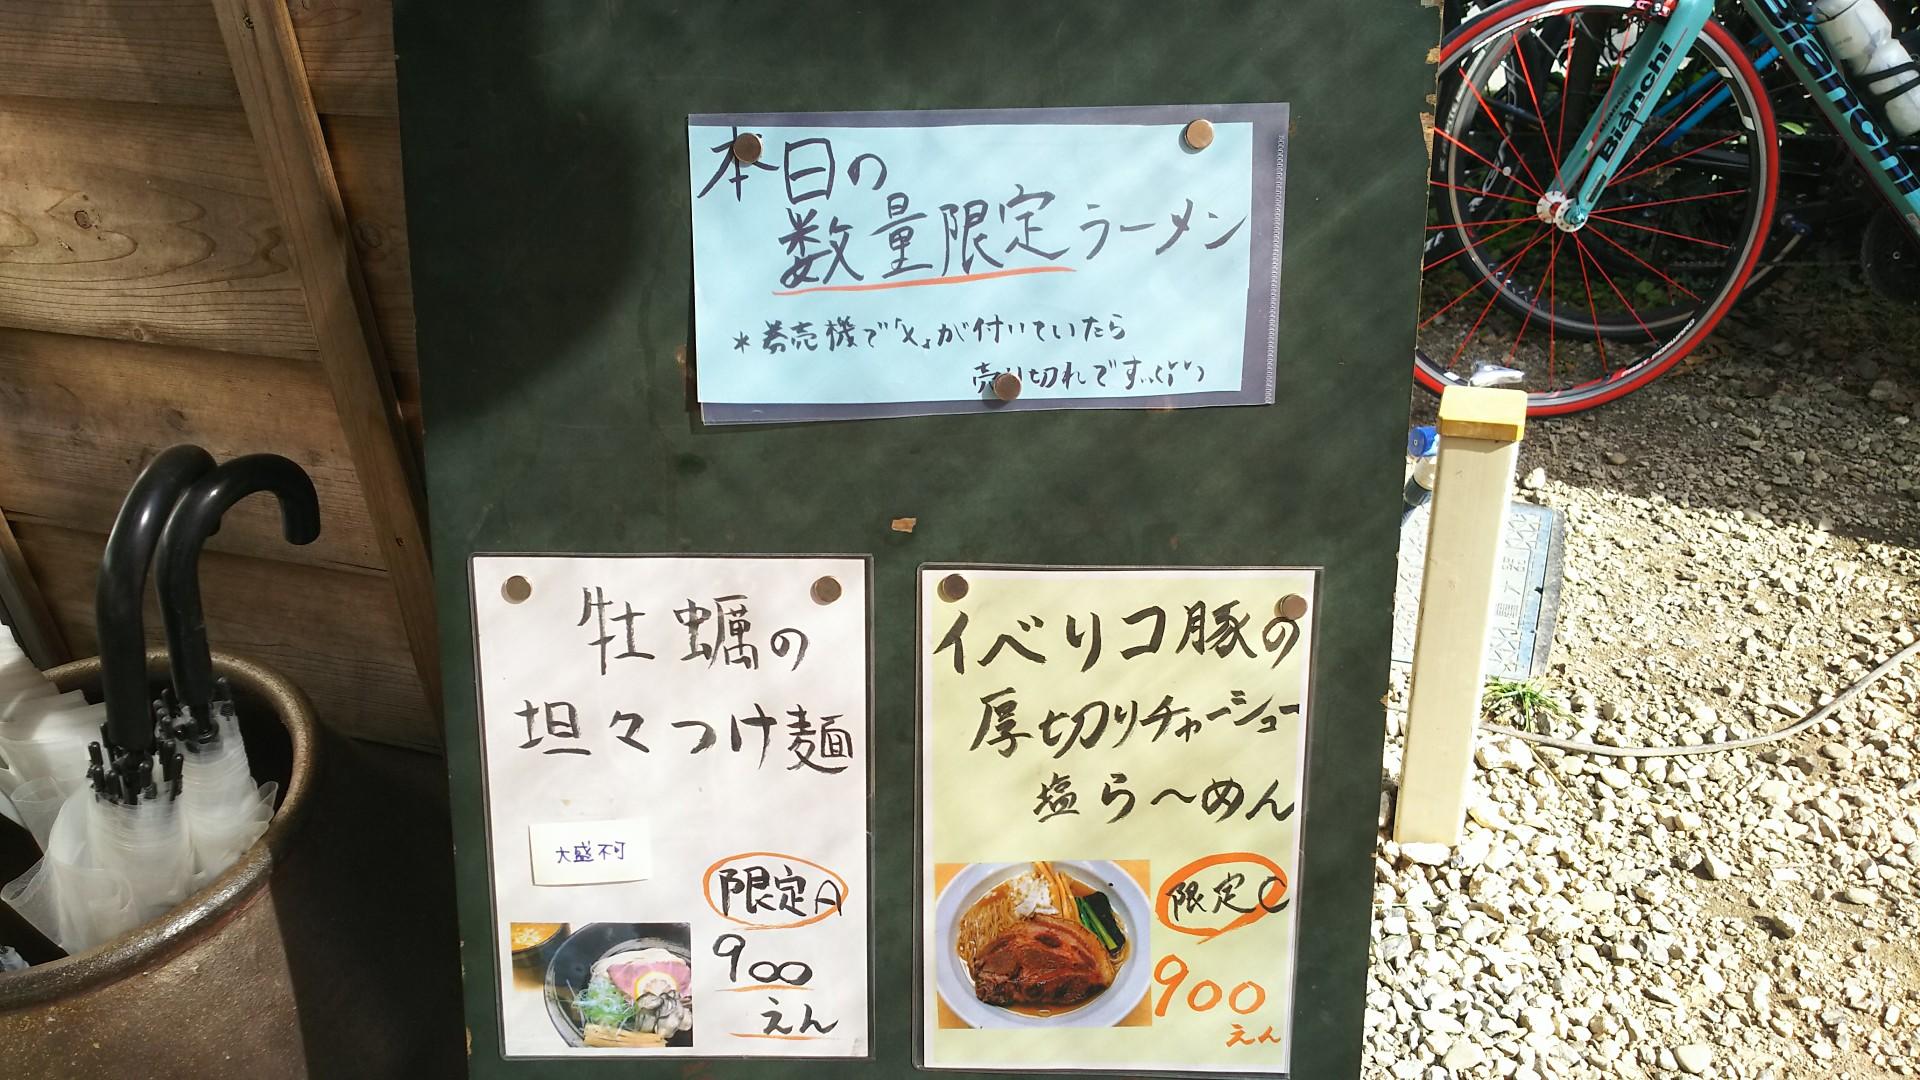 本日の
数量限定ラーメン
*券売機で「×」が付いていたら
売り切れです…(;;)
牡蠣の
坦々つけ麺
大盛不可
限定A
900
えん
イベリコ豚の
厚切りチャーシュー
塩ら〜めん
限定C
900
えん
Bianchi
Bianchi
FAST FORWARD